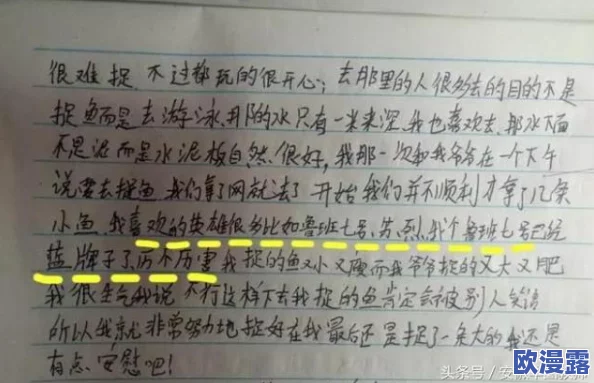 很难捉 不过都玩的很开心；去那里的人很多去的目的不是
捉鱼而是去游泳,那的水只有一米来深,我也喜欢去,那水下面
不是泥而是水泥板自然很好,我那一次和我爷爷在一个下午
说要去捉鱼,我们拿了网就去了 开始我们并不顺利才拿了几条
小鱼,我喜欢的英雄很多比如鲁班七号,苏,烈,我个鲁班七号已经
蓝牌子了厉不厉害 我捉的鱼又小又瘦而我爷爷捉的又大又肥
我很生气我说 不行这样下去我捉的鱼肯定会被别人笑话
所以我就非常努力地捉好在我最后还是捉了一条大的我还是
有点安慰吧!
头条号/安
欧漫露